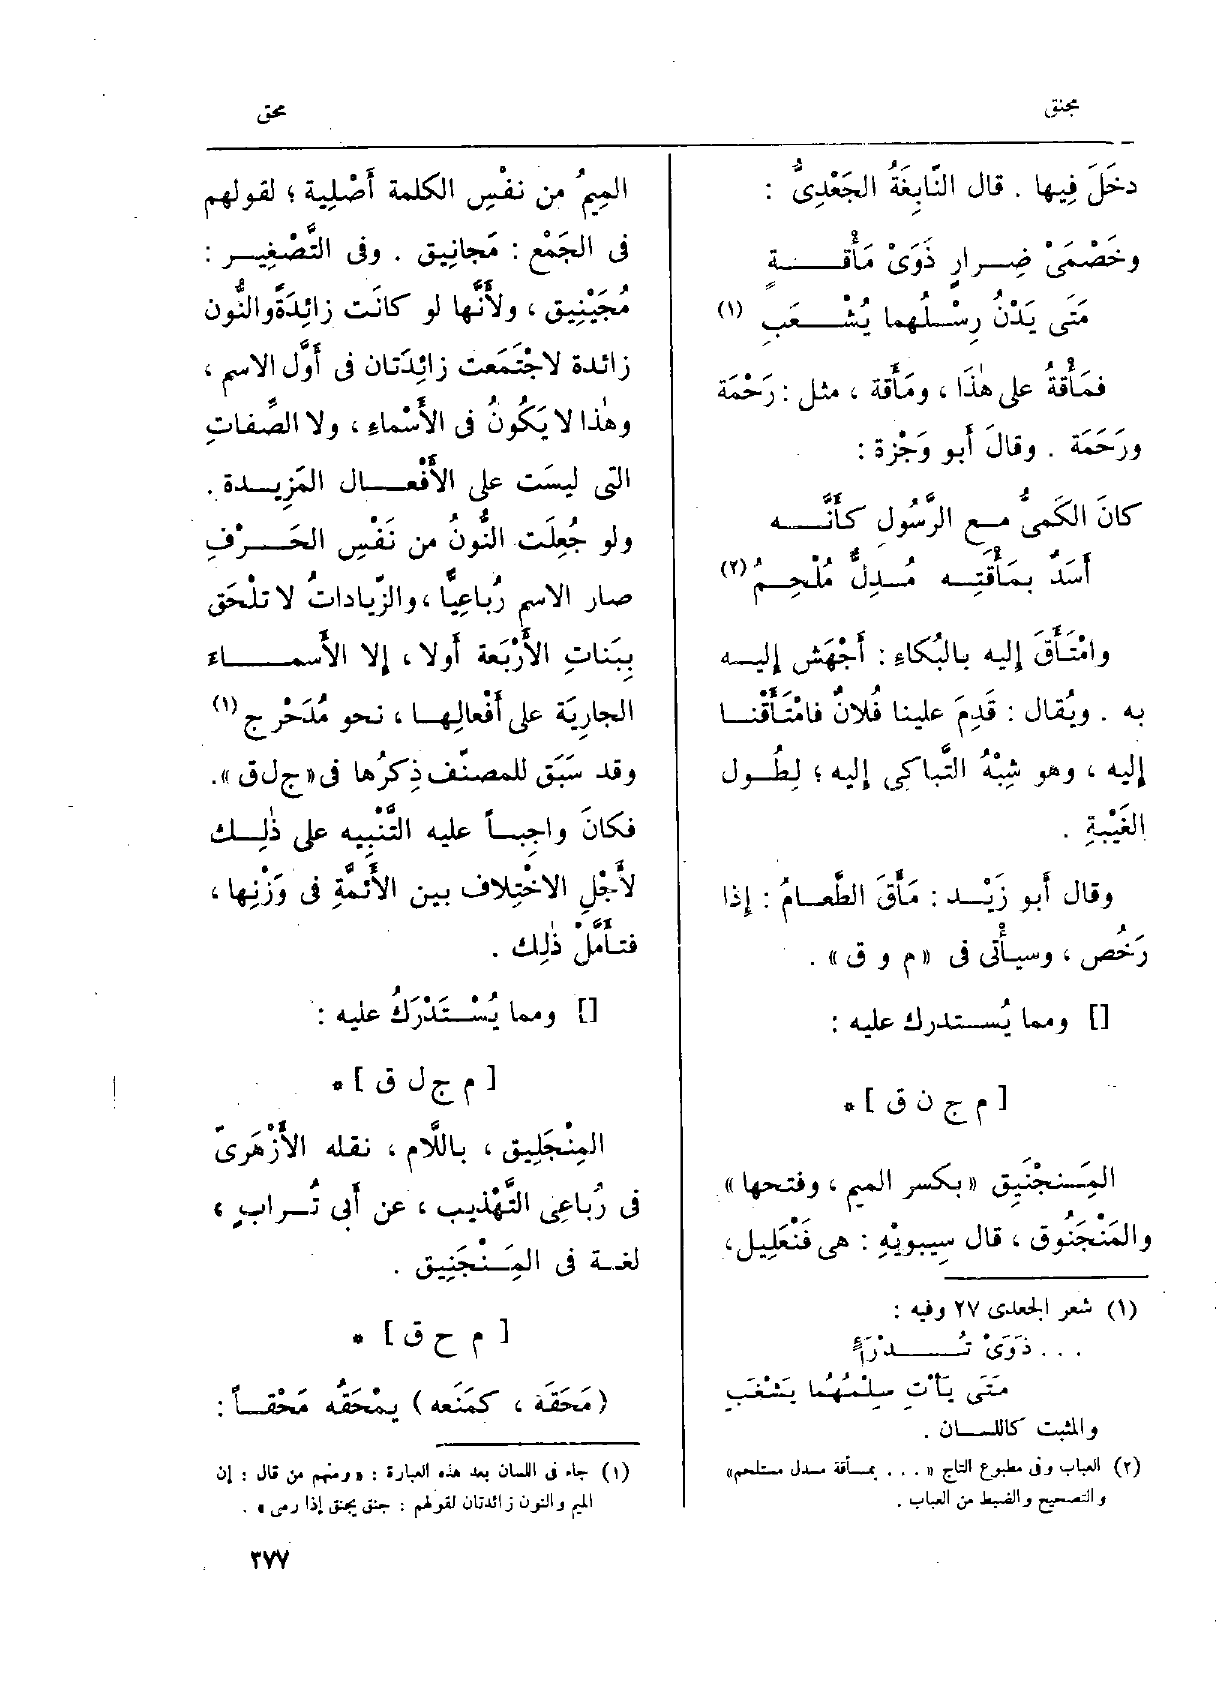 مجنق
محق
دخَلَ فِيها . قال النَّابِغَةُ الجَعْدِىُّ :
وخَصْمَىْ ضِرارٍ ذَوَىْ مَأْقَةٍ
مَتَى يَدْنُ رِسْلُهما يُشْعَبِ (١)
فمَأْقةُ على هٰذَا ، ومَأَقة ، مثل : رَحْمَة
ورَحَمَة . وقالَ أَبو وَجْزة :
كانَ الكَمِىُّ مع الرَّسُولِ كأَنَّه
أَسَدٌ بمَأْقَتِه مُدِلٌّ مُلْحِمُ (٢)
وامْتَأَقَ إليه بالبُكاءِ : أَجْهَش إليه
به . ويُقال : قَدِمَ علينا فُلانٌ فامْتَأَقْنا
إليه ، وهو شِبْهُ التَّباكِى إليه ؛ لِطُول
الغَيْبةِ .
وقال أَبو زَيْد : مَأَقَ الطَّعامُ : إذا
رَخُص ، وسيأْتى فى «م و ق» .
[] ومما يُستدرك عليه :
[ م ج ن ق ] *
المِنجْنَيِق «بكسر الميم ، وفتحها»
والمَنْجَنُوق ، قال سِيبويْهِ : هى فَنْعَلِيل ،
(١) شعر الجعدى ٢٧ وفيه :
... ذَوَىْ تُدْرَأٍ
مَتَى يَأْتِ سِلْمُهُما يَشْغَبِ
والمثبت كاللسان .
(٢) العباب وفى مطبوع التاج « ... بمأقة مدل مستلحم»
والتصحيح والضبط من العباب .
المِيمُ من نفْسِ الكلمة أَصْلِية ؛ لقولهم
فى الجَمْع : مَجانِيق . وفى التَّصْغِير :
مُجَيْنِيق ، ولأَنَّها لو كانَت زائِدَةً والنُّون
زائدة لاجْتَمَعت زائِدَتان فى أَوَّل الاسم ،
وهٰذا لا يَكُونُ فى الأَسْماءِ ، ولا الصِّفاتِ
التى ليسَت على الأَفْعال المَزِيدة .
ولو جُعِلَت النُّونُ من نَفْسِ الحَرْفِ
صار الاسم رُباعِيًّا ، والزِّياداتُ لا تلْحَق
بِبَناتِ الأَرْبَعة أَولا ، إلا الأَسماءَ
الجارِيَة على أَفْعالِها ، نحو مُدَحْرِج (١)
وقد سَبَق للمصنّف ذِكرُها فى «ج ل ق» .
فكانَ واجِباً عليه التَّنْبِيه على ذٰلِك
لأَجْلِ الاخْتِلاف بين الأَئمَّةِ فى وَزْنِها ،
فتأَمَّلْ ذٰلِك .
[] ومما يُسْتَدْرَكُ عليه :
[ م ج ل ق ] *
المِنْجَلِيق ، باللَّام ، نقله الأَزْهَرىّ
فى رُباعِى التَّهْذِيب ، عن أَبى تُرابٍ ،
لغة فى المِنْجَنِيق .
[ م ح ق ] *
(مَحَقَه ، كمَنَعه) يمْحَقُه مَحْقاً :
(١) جاء فى اللسان بعد هذه العبارة : «ومنهم من قال : إن
الميم والنون زائدتان لقولهم : جنق يجنق إذا رمى» .
٣٧٧